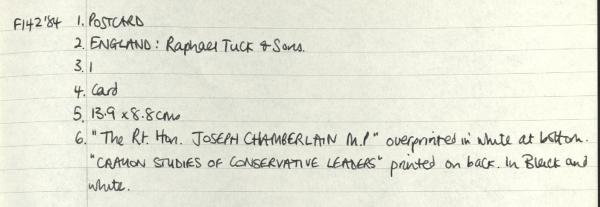 F142'84 1. POSTCARD
2. ENGLAND: Raphael Tuck & Sons.
3. 1
4. Card
5. 13.9 x 8.8 cms
6. "The Rt. Hon. JOSEPH CHAMBERLAIN M.P" overprinted in white at bottom.
"CRAYON STUDIES OF CONSERVATIVE LEADERS" printed on back. In Black and
white.